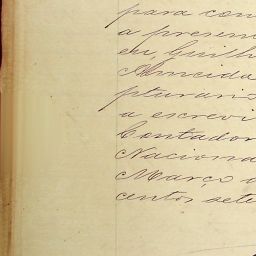 para con
a presen
eu, Guilh
Almeida
pturaris
a escrevi
Contador
Naciona
Março d
centos sete